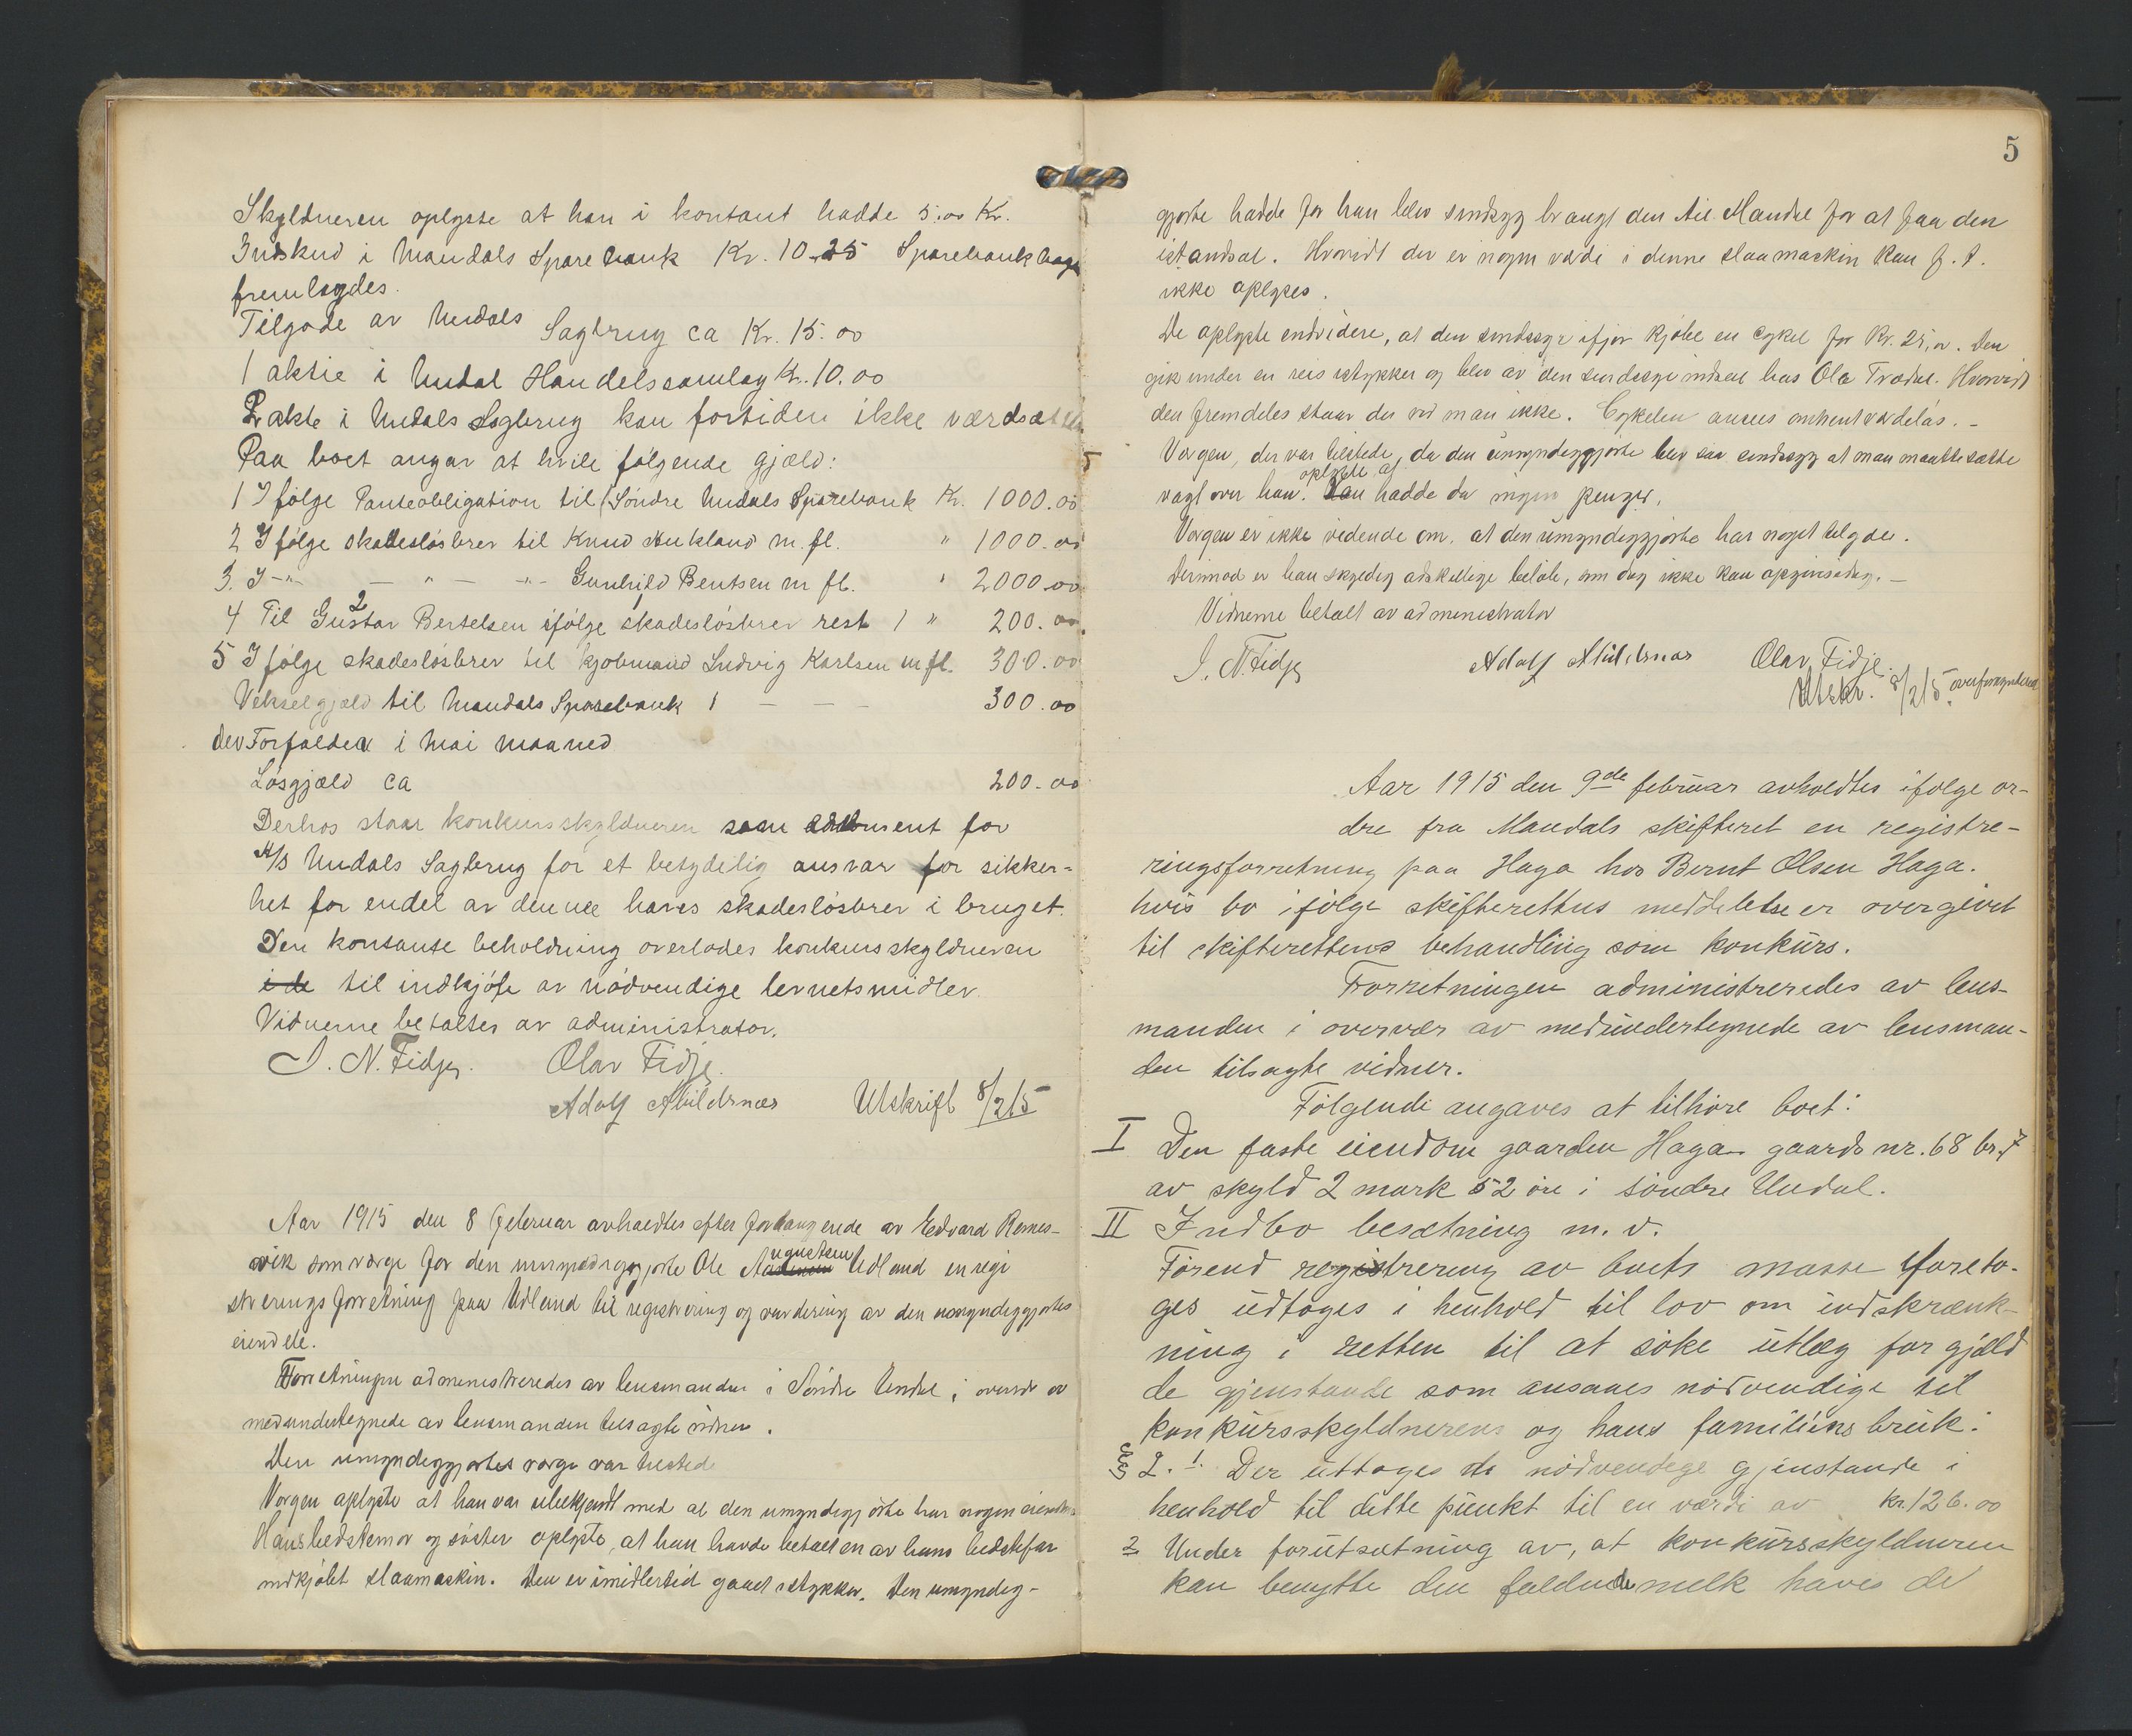 Skyldneren oplyste at han i kontant hadde 5.00 Kr.
Indskud i Mandals Sparebank Kr. 10.25 Sparebankbogen
fremlagdes.
Tilgode av Undals Sagbrug ca Kr. 15.00
1 aktie i Undal Handelssamlag Kr. 10.00
2 akte i Undals Sagbrug kan fortiden ikke værdsættes
Paa boet angav at hvile følgende gjæld:
1 Ifølge Panteobligation til Söndre Undals Sparebank Kr. 1000.00
2 Ifølge skadeslösbrev til Knud Aukland m. fl. " 1000.00
3. I -"- - " - -"- Gunhild Bentsen m fl. " 2000.00
4 Til Gustav Bertelsen ifölge 2 skadeslösbrev rest " 200.00
5 Ifölge skadeslösbrev til kjöbmand Ludvig Karlsen m fl. 300.00
Vekselgjæld til Mandals Sparebank 300.00
der Forfalder i Mai maaned
Lösgjæld ca 200.00
Derhos staar konkursskyldneren som for
A/S Undals Sagbrug for et betydelig ansvar for sikker-
het for endel av denne haves skadeslösbrev i bruget.
Den kontante beholdning overlodes konkursskyldneren
i de til indkjöp av nödvendige levnetsmidler.
Vidnerne betaltes av administrator.
J. N. Fidje. Olav Fidje.
Adolf Abildsnes Utskrift 8/2 15
Aar 1915 den 8 Februar avholdtes efter forlangende av Edvard Romes-
vik som værge for den umyndiggjorte Ole Augustsen Udland en regi
streringsforretning paa Udland til registrering og vurdering av den umyndiggjortes
eiendele.
Forretningen administreredes av lensmanden i Söndre Undal i overvær av
medundertegnede av lensmanden tilsagte vidner.
Den umyndiggjortes værge var tilstede
Værgen oplyste at han var ubekjendt med at den umyndiggjorte har nogen eiendele
Hans bedstemor og söster oplyste, at han havde betalt en av hans bedstefar
indkjöbt slaamaskin. Den er imidlertid gaaet istykker. Den umyndig-
5
gjorte hadde för han blev sindssyg bragt den til Mandal for at faa den
istandsat. Hvorvidt der er nogen værdi i denne slaamaskin kan f. t.
ikke oplyses.
De oplyste endvidere, at den sindssyge ifjor kjöbte en cykel for Kr. 25,00. Den
gik under en reis istykker og blev av den sindssyge indsat hos Ola Trædal. Hvorvidt
den fremdeles staar der ved man ikke. Cykelen ansees omhent værdilös. -
Værgen, der var tilstede, da den umyndiggjorte blev saa sindssyg at man maatte sætte
vagt over han. oplyste at han hadde da ingen penger.
Værgen er ikke vidende om, at den umyndiggjorte har noget tilgode.
Derimod er han skyldig adskellige belöb, som dog ikke kan opgives idag. -
Vidnerne betalt av administrator
J. N. Fidje Adolf Abildsnes Olav Fidje
Utskr. 8/2 15. overformynderiet
Aar 1915 den 9de februar avholdtes ifölge or-
dre fra Mandals skifteret en registre-
ringsforretning paa Haga hos Bernt Olsen Haga.
hvis bo ifölge skifterettens meddelelse er overgivet
til skifterettens behandling som konkurs.
Forretningen administreredes av lens-
manden i overvær av medundertegnede av lensman-
den tilsagte vidner.
Fölgende angaves at tilhöre boet:
I Den faste eiendom gaarden Haga gaards nr. 68 br. 7
av skyld 2 mark 52 öre i söndre Undal.
II Indbo besætning m. v.
Förend registrering av boets masse foreto-
ges udtoges i henhold til lov om indskrænk-
ning i retten til at söke utlæg for gjæld
de gjenstande som ansaaes nödvendige til
konkursskyldnerens og hans familiens bruk:
§ 2. 1. Der uttoges de nödvendige gjenstande i
henhold til dette punkt til en værdi av Kr. 126.00
2 Under forutsætning av, at konkursskyldneren
kan benytte den faldende melk haves de